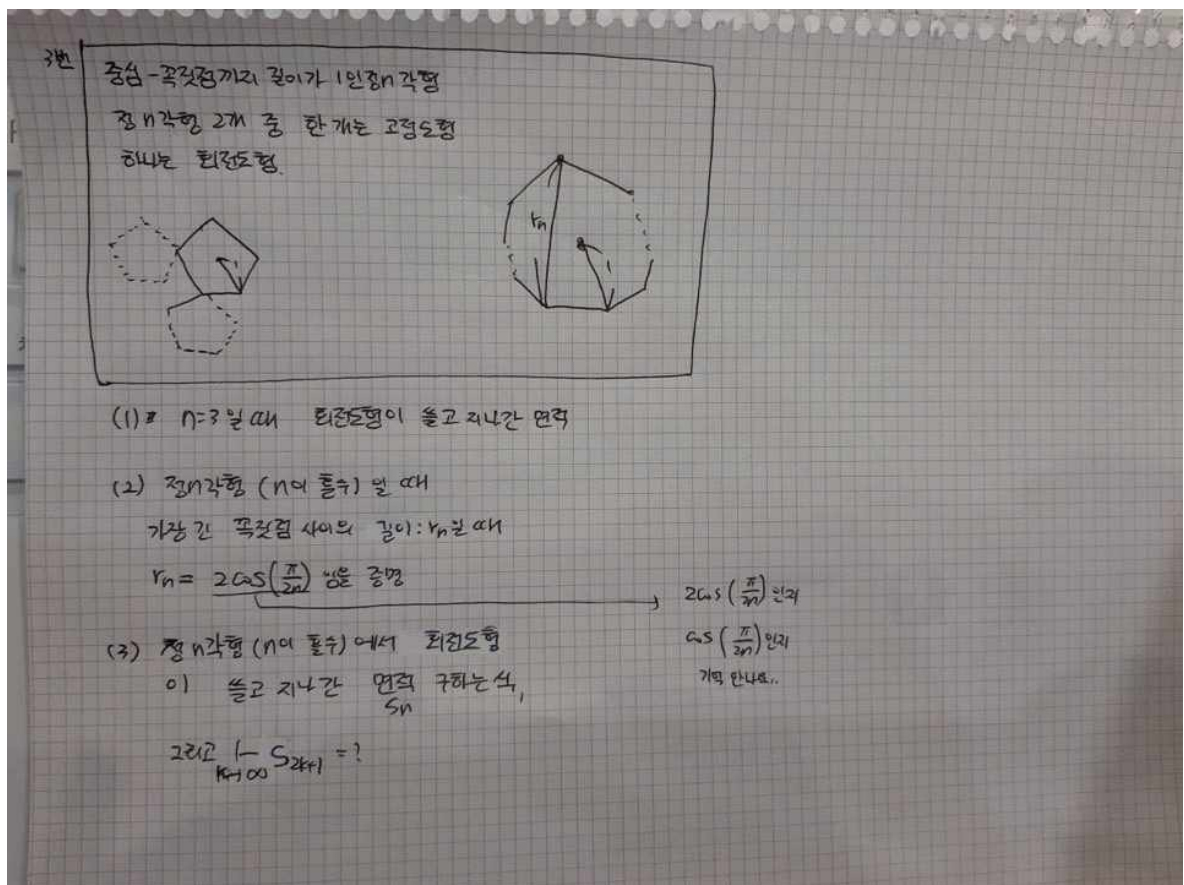 3번
중심-꼭짓점까지 길이가 1인 정n각형
정n각형 2개 중 한 개는 고정도형
하나는 회전도형.
rn
1
1
(1) n=3일 때 회전도형이 쓸고 지나간 면적
(2) 정n각형 (n이 홀수) 일 때
가장 긴 꼭짓점 사이의 길이: rn일 때
rn = 2cos(π/2n) 임을 증명
2cos(π/2n)인지
cos(π/2n)인지
기억 안나요..
(3) 정n각형 (n이 홀수)에서 회전도형
이 쓸고 지나간 면적 구하는 식,
Sn
그리고 l- S2k+1 = ?
k→∞